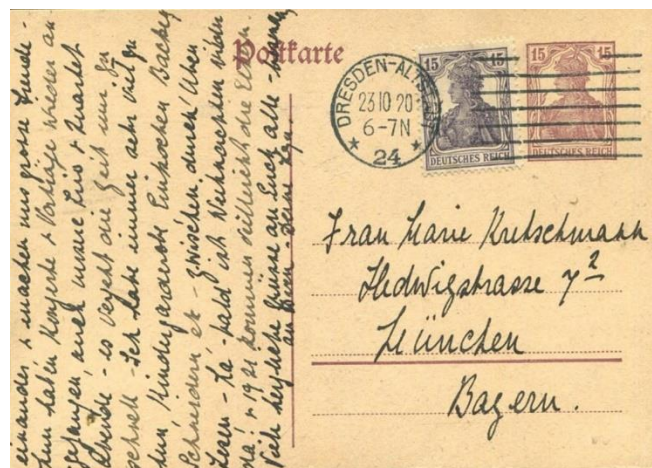 Postkarte
DRESDEN-ALTST.
23 10 20
6-7N
* 24 *
15 15
DEUTSCHES REICH
15 15
DEUTSCHES REICH
Frau Marie Kretschmann
Hedwigstrasse 7²
München
Bayern.
einander & machen uns grosse Freude -
dann haben Konzerte & Vorträge wieder an-
gefangen, auch unsere Trios & Quartet
Abende - es vergeht die Zeit nur zu
schnell - Ich habe immer sehr viel zu
tun Kindergarderobe Einkochen Backen
Schneidern etc - zwischen durch Üben
Lesen - ha - bald ist Weihnachten wieder
da! & 1921 kommen vielleicht die Eltern.
Viele herzliche Grüsse an Euch alle